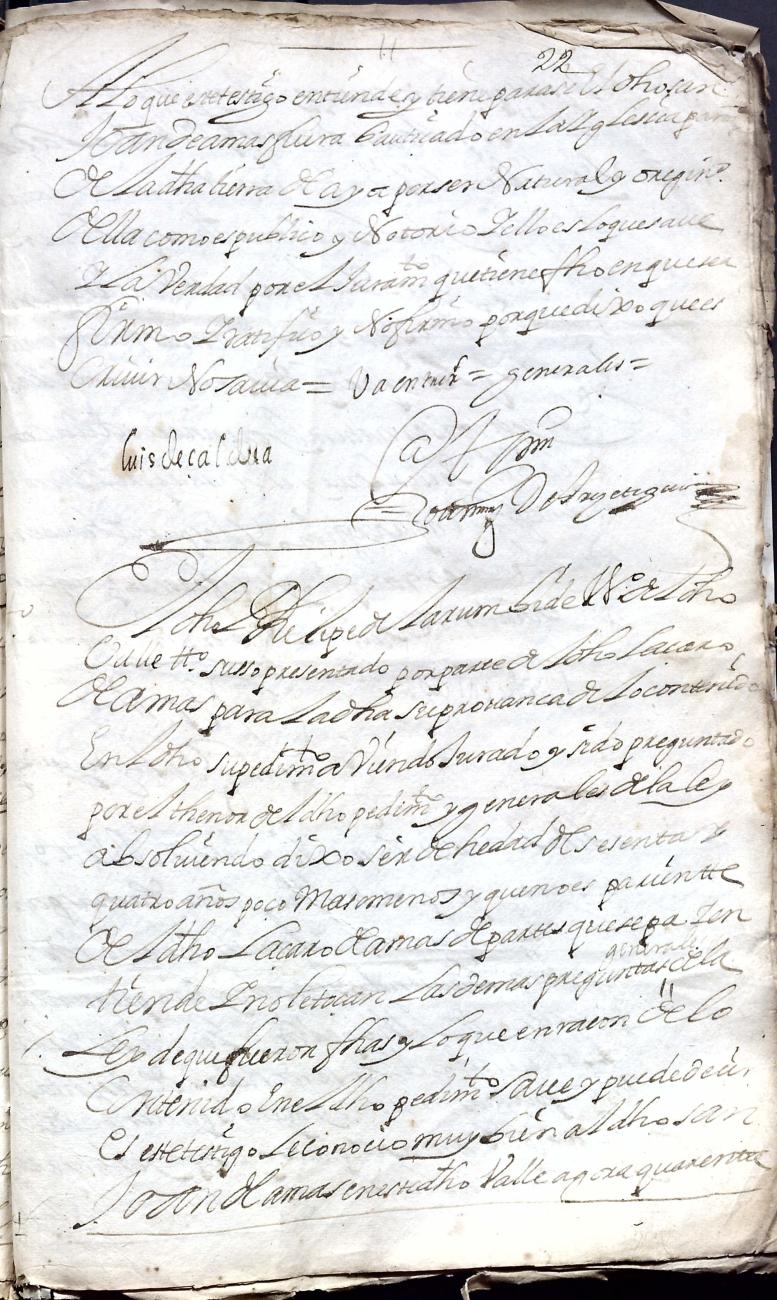 22
A lo que este testigo entiende y tiene para si El dho san
Joan de amas fuera bautiçado en la Iglesia par
de la dha tierra de aya por ser Natural y origin.o
della como es publico y Notorio Y ello es lo que saue
Y La Verdad por el Juram.to que tiene fho en que se
firmo Y ratifico y No firmo porque dixo que es
criuir No sauia = Va entre r.s = generales =
luis de
Ante mi
El dho Phelipe de Larrumbide V.o de L dho
Valle tt.o susso presentado por parte de L dho Laçaro
de amas para La dha su provanca de Lo contenido
En L dho su pedim.to aViendo Jurado y sido preguntado
por el thenor de L dho pedim.to y generales de la ley
absoluiendo dixo ser de hedad de sesenta y
quatro años poco Mas o menos y que no es pariente
de L dho Lacaro de amas de partes que sepa Y en
tiende Y no le tocan Las demas preguntas generales de la
Ley de que fueron fhas y Lo que en racon de lo
Contenido En e L dho pedim.to saue y puede decir
es este testigo Le conocio muy bien a L dho san
Joan de amas en este dho Valle agora quarenta